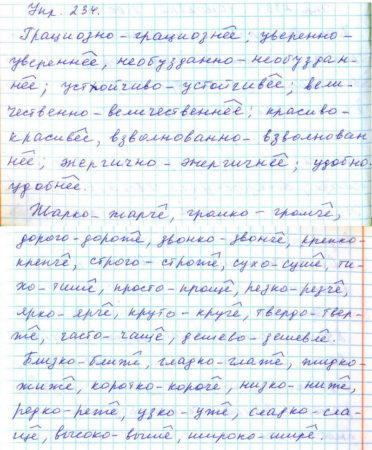 Упр. 234.
Грациозно - грациознее; уверенно-
увереннее, необузданно - необуздан-
нее; устойчиво - устойчивее; вели-
чественно - величественнее; красиво-
красивее, взволнованно - взволнован
нее; энергично - энергичнее; удобно
удобнее.
Жарко - жарче, громко - громче,
дорого - дороже, звонко - звонче, крепко-
крепче, строго - строже, сухо - суше, ти-
хо - тише, просто - проще, резко - резче,
ярко - ярче, круто - круче, твердо - твер-
же, часто - чаще, дешево - дешевле.
Близко - ближе, гладко - глаже, жидко-
жиже, коротко - короче, низко - ниже,
редко - реже, узко - уже, сладко - сла-
ще, высоко - выше, широко - шире.